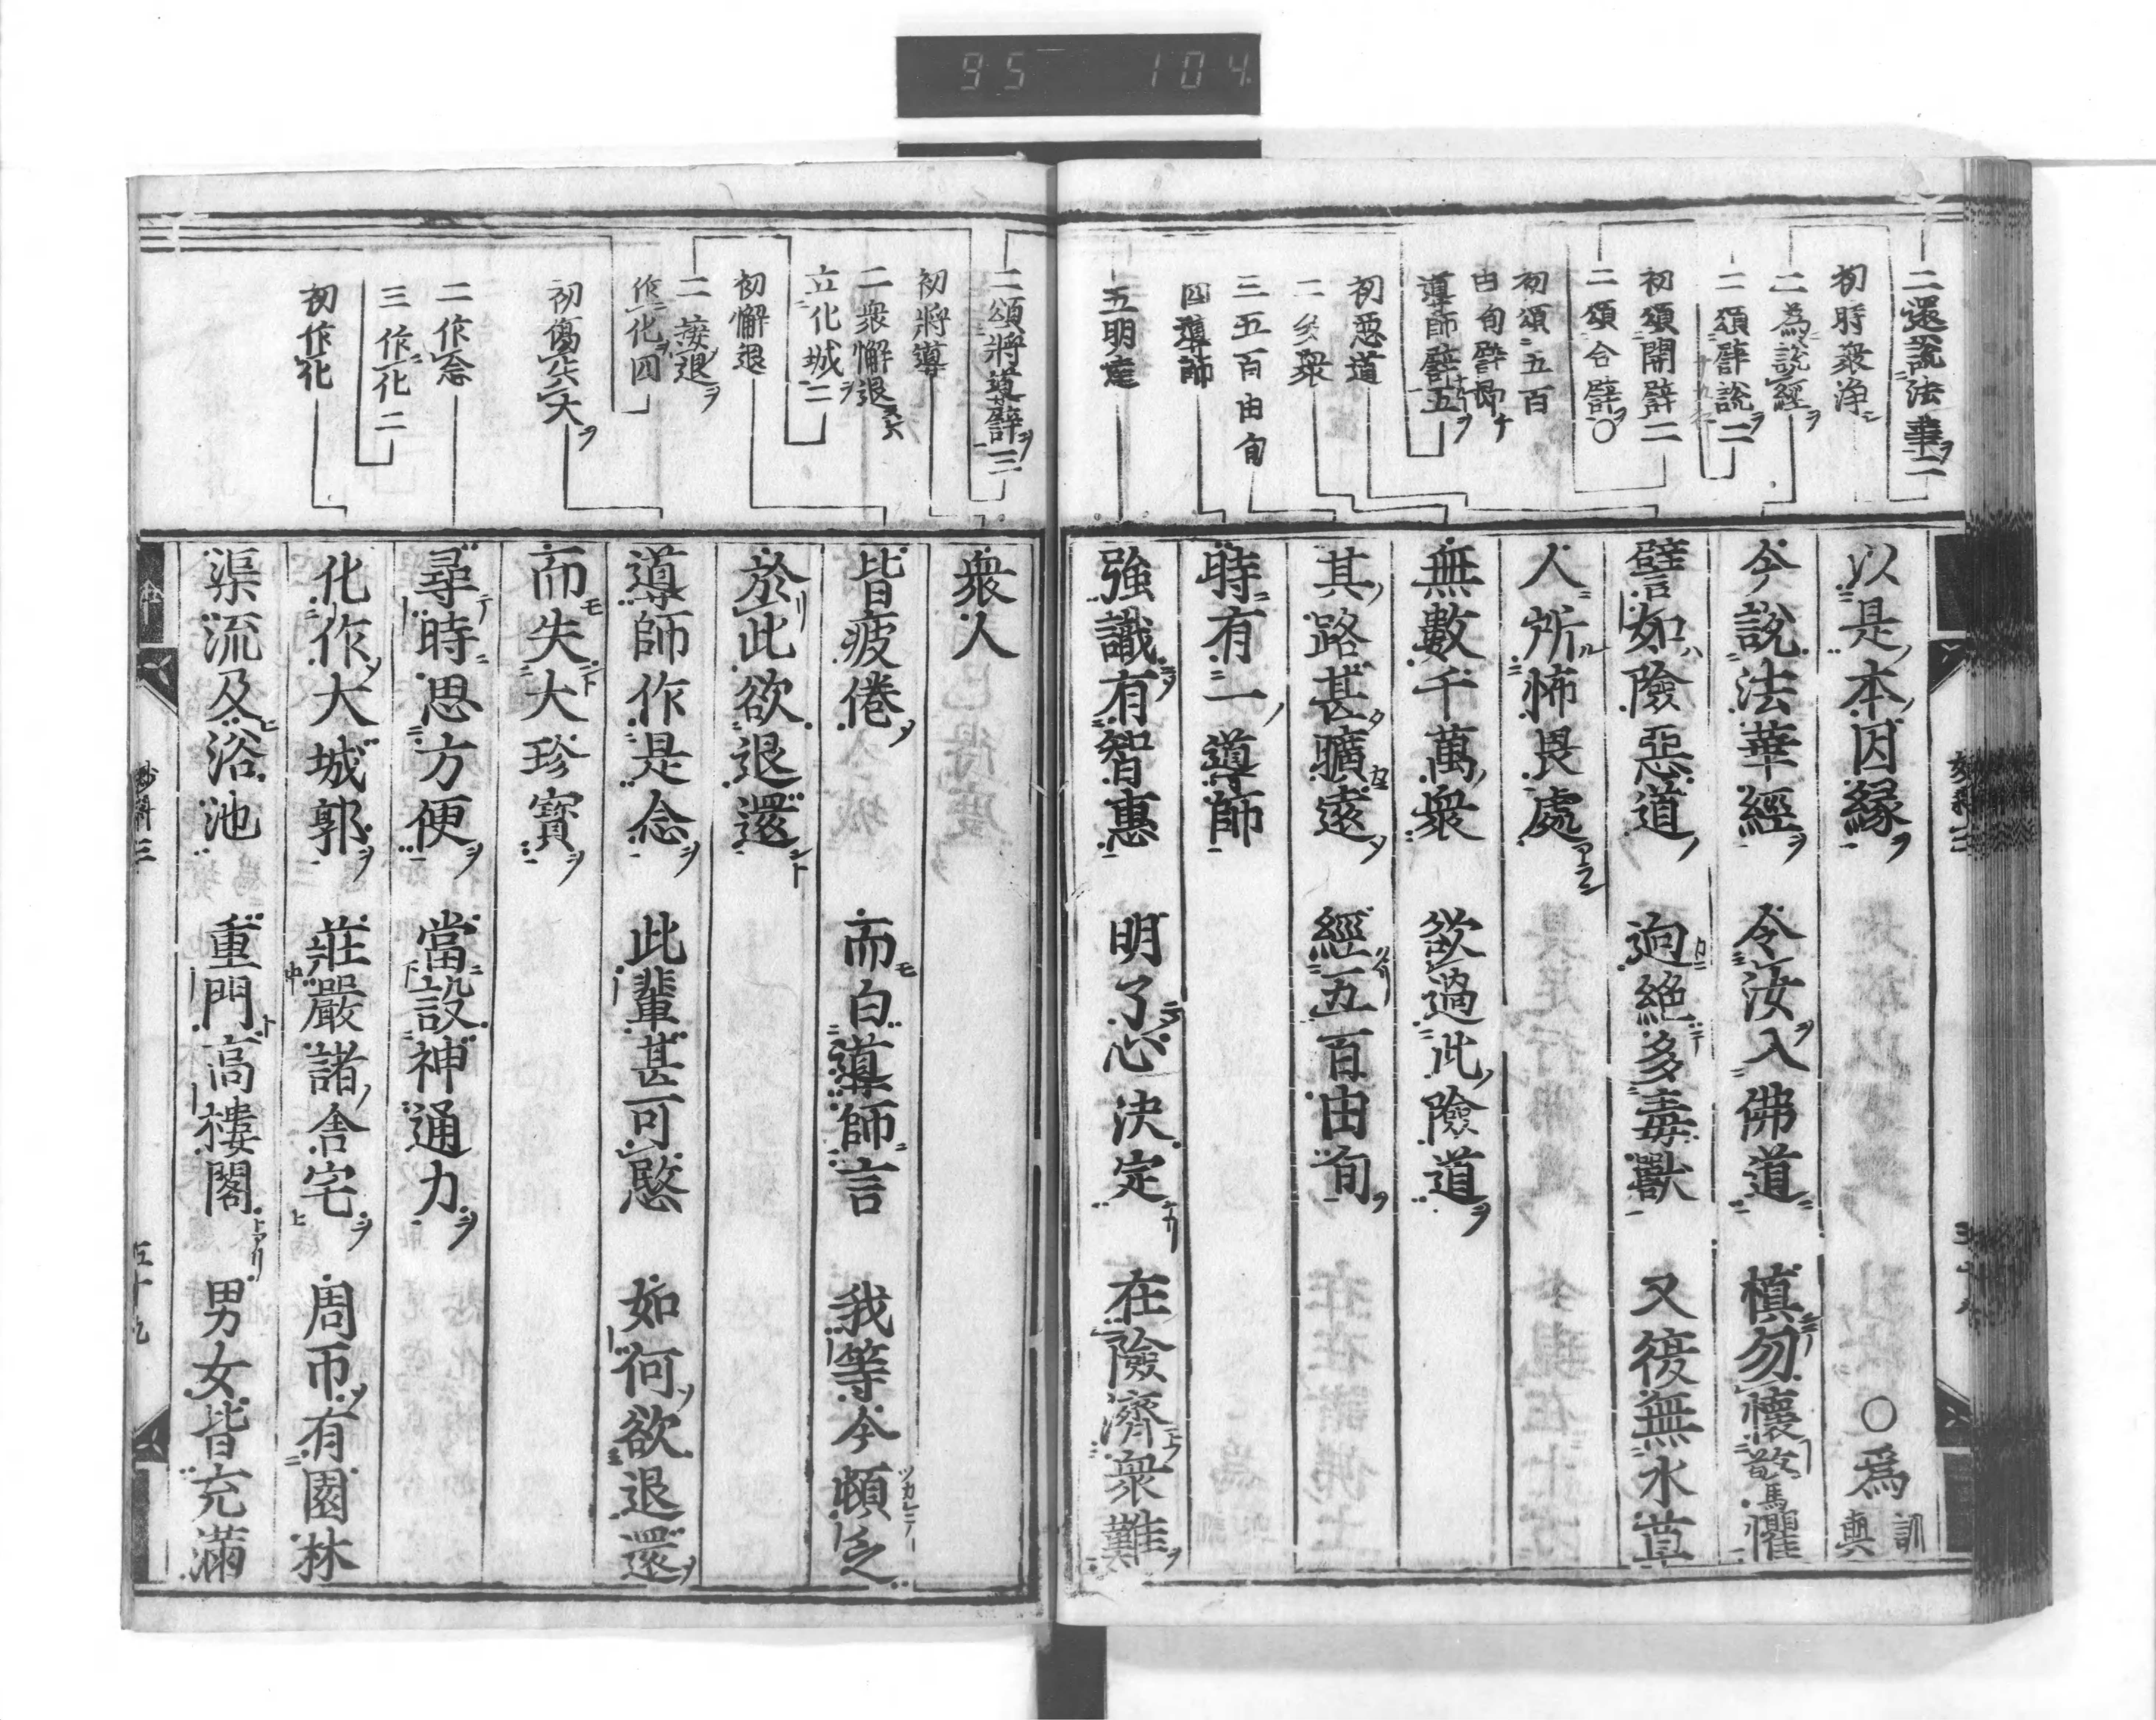 95 104
二還說法華二
初時衆淨
二為說經
二頌譬說二
初頌開譬二
二頌合譬○
初頌五百
由旬譬
導師譬五
初惡道
二多衆
三五百由旬
四導師
五明達
以是本因緣 ○爲訓與
今說法華經 令汝入佛道 慎勿懷驚懼
譬如險惡道 逈絕多毒獸 又復無水草
人所怖畏處
無數千萬衆 欲過此險道
其路甚曠遠 經五百由旬
時有一導師
強識有智惠 明了心決定 在險濟衆難
二頌將導譬三
初將導
二衆懈退
立化城二
初懈退
二接退
作化四
初傷失大
二作念
三作化二
初作化
衆人
皆疲倦 而白導師言 我等今頓乏
於此欲退還
導師作是念 此輩甚可愍 如何欲退還
而失大珍寶
尋時思方便 當設神通力
化作大城郭 莊嚴諸舍宅 周帀有園林
渠流及浴池 重門高樓閣 男女皆充滿
五十九